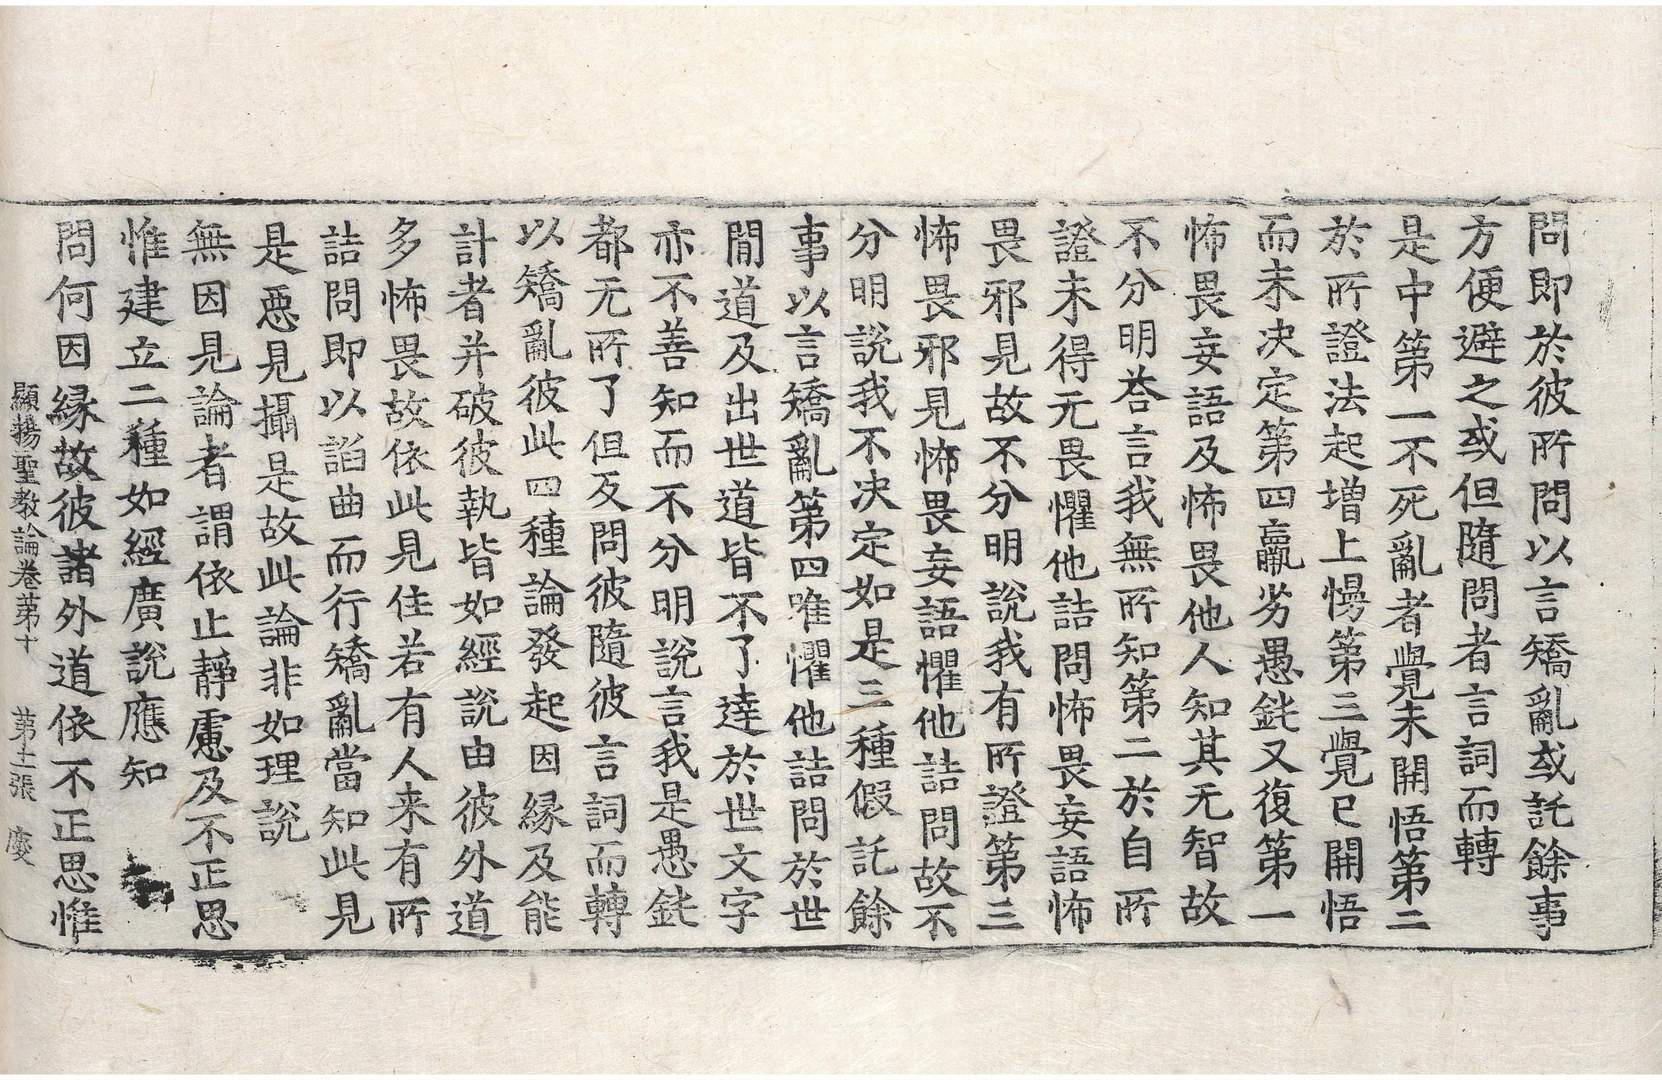 問即於彼所問以言矯亂或託餘事
方便避之或但隨問者言詞而轉
是中第一不死亂者覺未開悟第二
於所證法起增上慢第三覺已開悟
而未決定第四羸劣愚鈍又復第一
怖畏妄語及怖畏他人知其无智故
不分明荅言我無所知第二於自所
證未得无畏懼他詰問怖畏妄語怖
畏邪見故不分明說我有所證第三
怖畏邪見怖畏妄語懼他詰問故不
分明說我不決定如是三種假託餘
事以言矯亂第四唯懼他詰問於世
閒道及出世道皆不了達於世文字
亦不善知而不分明說言我是愚鈍
都无所了但反問彼隨彼言詞而轉
以矯亂彼此四種論發起因緣及能
計者并破彼執皆如經說由彼外道
多怖畏故依此見住若有人来有所
詰問即以諂曲而行矯亂當知此見
是惡見攝是故此論非如理說
無因見論者謂依止靜慮及不正思
惟建立二種如經廣說應知
問何因緣故彼諸外道依不正思惟
顯揚聖教論卷第十 第十一張 慶